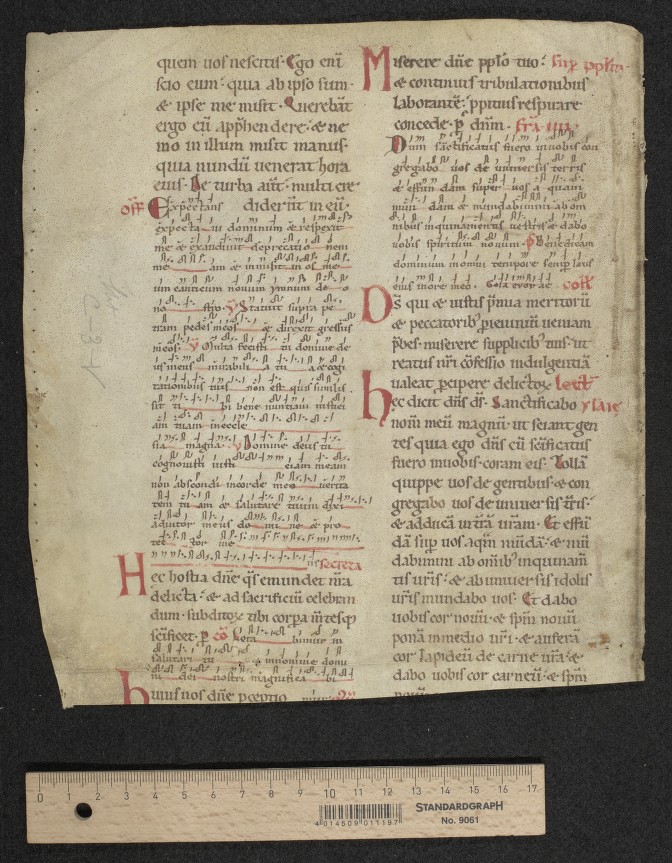 quem uos nescitis. Ego eni̅
scio eum. quia ab ipso sum.
& ipse me misit. Querebāt
ergo eu̅ app̅hendere. & ne
mo in illum misit manus.
quia nundu̅ uenerat hora
eius. De turba aut̅. multi cre
Expectans diderūt in eu̅.
expecta ui dominum & respexit
me & exaudiuit deprecatio nem
me am & inmisit in os me
um canticum nouum ymnum de o
no stro. Statuit supra pe
tram pedes meos & direxit gressus
meos. Multa fecisti tu domine de
us meus mirabili a tu a & cogi
tationibus tuis non est quis similis
sit ti bi bene nuntiaui iusticiam
am tuam in eccle
sia magna. Domine deus tu
cognouisti iusti ciam meam
non abscondi in corde meo uerita
tem tu am & salutare tuum dixi
adiutor meus do mi ne & pro
tec tor me
us secreta
Hec hostia dn̅e q̅s emundet n̅ra
delicta. & ad sacrificiu̅ celebran
dum subditoꝝ tibi corp̅a m̅tesq̅
sc̅ificet. p̅ co̅ Leta bimur in
salutari tu o & in nomine domi
ni dei nostri magnifica bi
huius nos dn̅e p̅ceptio
Miserere dn̅e pp̅lo tuo. sup̅ pp̅lm̅
& continuis tribulationibus
laborante̅. ppitius respirare
concede. p̅ dn̅m. fr̅a iiii
Dum sanctificatus fuero in uobis con
gregabo uos de uniuersis terris
& effun dam super uos a quam
mun dam & mundabimini ab om
nibus inquinamentis uestris & dabo
uobis spiritum nouum. Benedicam
dominum in omni tempore semp̅ laus
eius in ore meo. Gl̅a euoꝛ ae coll̅
Ds̅ qui & iustis p̅mia meritoru̅
& peccatorib; p̅ ieiuniu̅ ueniam
p̅bes. miserere supplicib; tuis. ut
reatus n̅ri co̅fessio indulgentia̅
ualeat p̅cipere delictoꝝ lect̅
hec dicit dn̅s ds̅. Sanctificabo ysaię
nom̅ meu̅ magnu̅. ut sciant gen
tes quia ego dn̅s cu̅ sc̅ificatus
fuero in uobis. coram eis. Tolla̅
quippe uos de gentibus. & con
gregabo uos de uniuersis t̅ris.
& adduca̅ uos in t̅ra̅ ur̅am. Et effu̅
da̅ sup̅ uos aqm̅ mu̅da̅. & mu̅
dabimini ab om̅ib; inquinam̅
tis ur̅is. & ab uniuersis idolis
ur̅is mundabo uos. Et dabo
uobis cor nouu̅. & sp̅m nouu̅
pona̅ in medio ur̅i. & aufera̅
cor lapideu̅ de carne ur̅a. &
dabo uobis cor carneu̅. & sp̅m
0 1 2 3 4 5 6 7 8 9 10 11 12 13 14 15 16 17
4 014509 011197
STANDARDGRAPH
No. 9061